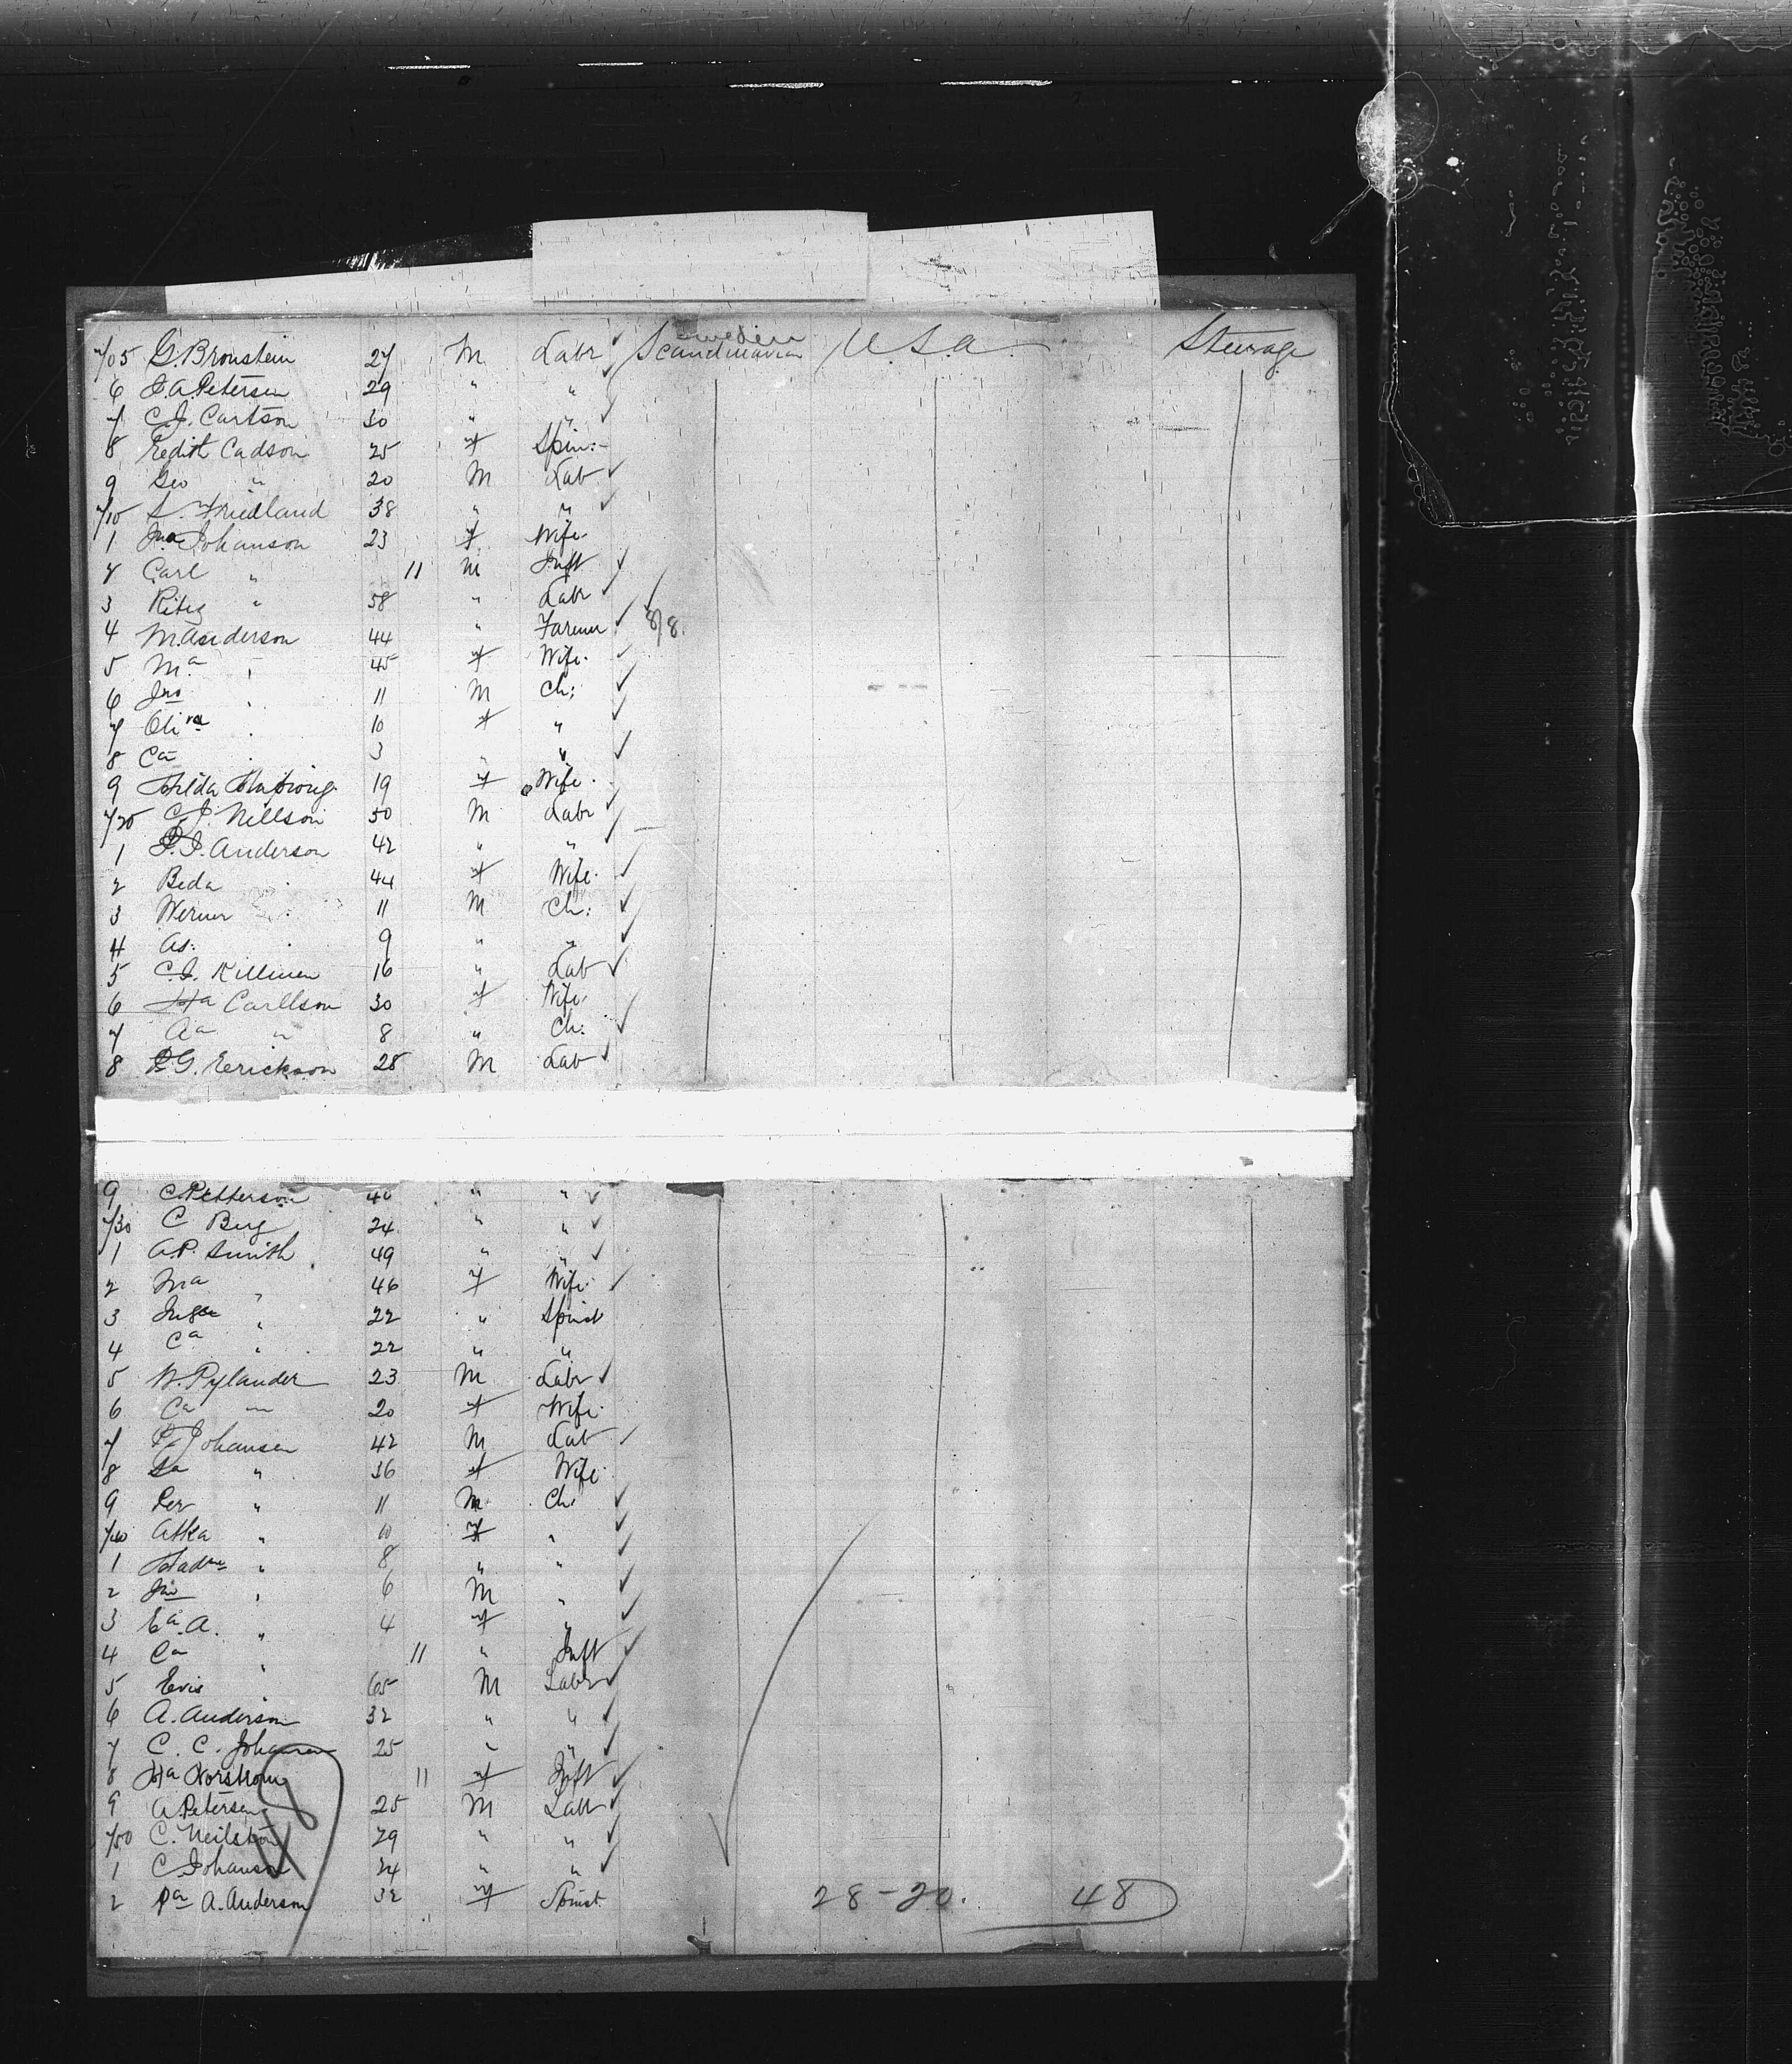 705 G. Bronstein 27 M Labr Sweden Scandinavian U.S.A. Steerage
6 E.A. Petersen 29 " "
7 C.J. Carlson 30 " "
8 Edith Cadson 25 f Spin:
9 Geo " 20 M Lab
710 S. Friedland 38 " "
1 Jna Johanson 23 f Wife
2 Carl " 11 M Inft
3 " 58 " Labr
4 M. Anderson 44 " Farmer 8/8.
5 Ma " 45 f Wife
6 Jno " 11 M Ch:
7 " 10 f "
8 Ca " 3 " "
9 Hilda 19 f Wife
720 C.J. Nillson 50 M Labr
1 P.J. Anderson 42 " "
2 Beda " 44 f Wife
3 Werner " 11 M Ch:
4 As. " 9 " "
5 C.J. 16 " Lab
6 Ha Carllson 30 f Wife
7 Aa " 8 " Ch:
8 P.G. Erickson 28 M Lab
9 C. Petterson 40 " "
730 C Berg 24 " "
1 A.P. Smith 49 " "
2 Ma " 46 f Wife
3 " 22 " Spinst
4 Ca " 22 " "
5 N. Pylander 23 M Labr
6 Ca " 20 f Wife
7 P. Johansen 42 M Lab
8 Sa " 36 f Wife
9 Per " 11 M Ch:
740 " 10 f "
1 " 8 " "
2 Jno " 6 M "
3 Ea. A. " 4 f "
4 Ca " 11 " Inft
5 " 65 M Labr
6 A. Anderson 32 " "
7 C. C. Johansen 25 " "
8 Ha Norstrom 11 f Inft
9 A. Petersen 25 M Labr
750 C. Neilston 29 " "
1 C. Johanson 24 " "
2 A. Anderson 32 f Spinst. 28-20. 48
48